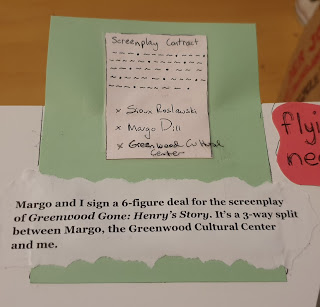 Screenplay Contract
x Sioux Roslawski
x Margo Dill
x Greenwood Cultural
Center
flyi
nee
Margo and I sign a 6-figure deal for the screenplay
of Greenwood Gone: Henry's Story. It's a 3-way split
between Margo, the Greenwood Cultural Center
and me.